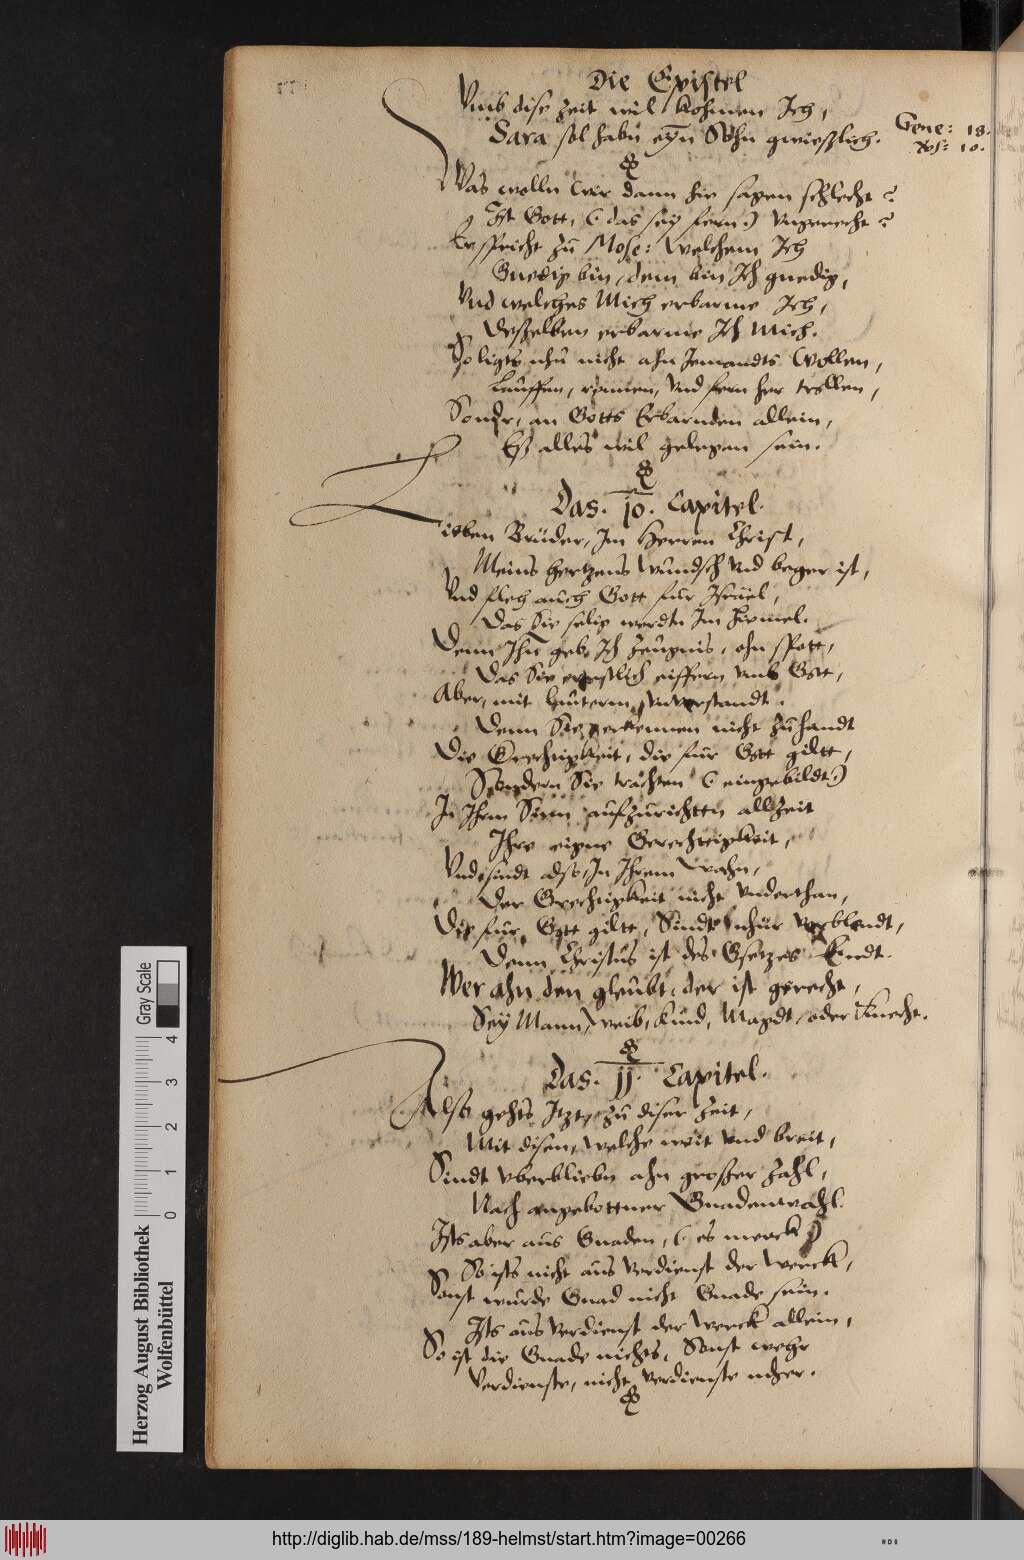 Die Epistel
Vmb dise Zeit wil kohmen Ich,
Sara sol habn eyn Sohn gwießlich.
Gene: 18.
Ros: 10.
Was wolln wir dann hie sagen schlecht?
Ist Gott, (das sey fern) vngerecht?
Er spricht zu Mose: Welchem Ich
Gnedig bin, dem bin Ich gnedig,
Vnd welches Mich erbarme Ich,
Deßelben erbarme Ich Mich.
So ligts nhu nicht ahn Jemandts Wollen,
Lauffen, rennen, vnd fern her trollen,
Sondr, an Gotts Erbarmden allein,
Eß alles wil gelegen sein.
Das. 10. Capitel.
Lieben Brüder, Im Herren Christ,
Meins hertzens Wundsch vnd beger ist,
Vnd fleh auch Gott fur Israel,
Das Sie selig werdn Im Himel.
Denn Ihn geb Ich Zeugnis, ohn spott,
Das Sie ernstlich eiffern vmb Gott,
Aber, mit lauterm vnverstandt.
Denn Sie erkennen nicht zuhandt
Die Grechtigkeit, die fur Gott giltt,
Sondern Sie trachten (eingebildt)
In Ihrm Sinn aufzurichten allzeit
Ihre eigne Gerechtigkeit,
Vnd sindt also, In Ihrem Wahn,
Der Grechtigkeit nicht vnderthan,
Die fur Gott giltt, Sindt nhur verblendt,
Denn Christus ist des Gsetzes Endt.
Wer ahn den gleubt, der ist gerecht,
Sey Mann, weib, kind, Magdt, oder Knecht.
Das. 11. Capitel.
Also gehts Itzt, zu diser Zeit,
Mit disen, welche weit vnd breit,
Sindt vberbliebn ahn großer Zahl,
Nach angebottner Gnadenwahl.
Ists aber aus Gnaden, (es merck)
So ists nicht aus verdienst der Werck,
Sonst wurde Gnad nicht Gnade sein.
Ists aus verdienst der Werck allein,
So ist die Gnade nichts, Sonst wehr
Verdienste, nicht verdienste
Gray Scale
4 3 2 1 0
Herzog August Bibliothek
Wolfenbüttel
http://diglib.hab.de/mss/189-helmst/start.htm?image=00266